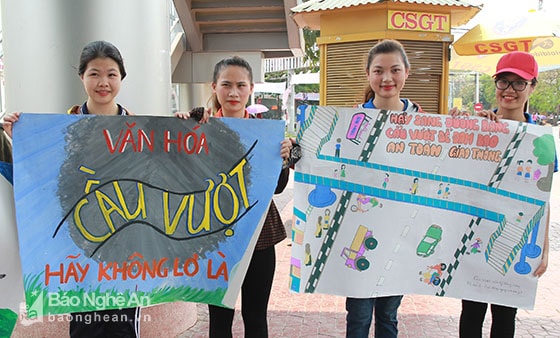 CSGT
CSGT
VĂN HÓA
CẦU VƯỢT
HÃY KHÔNG LƠ LÀ
HÃY SANG ĐƯỜNG BẰNG
CẦU VƯỢT ĐỂ ĐẢM BẢO
AN TOÀN GIAO THÔNG
Báo Nghệ An
baonghean.vn